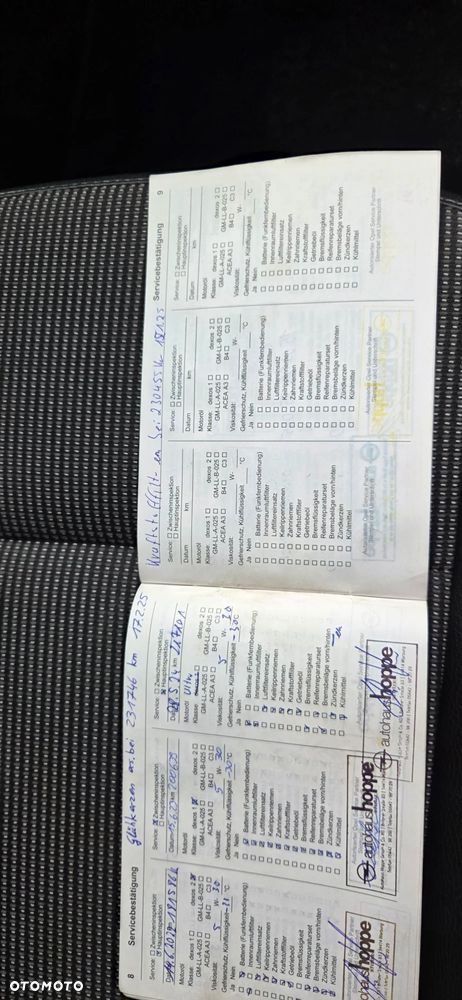 8 Servicebestätigung
Glühkerzen ers. bei 231746 km 17.2.25
Service: Zwischeninspektion
Hauptinspektion
Datum km
Motoröl
Klasse dexos 1 dexos 2
GM-LL-A-025 GM-LL-B-025
ACEA A3 B4 C3
Viskosität 5 W- 30
Gefrierschutz, Kühlflüssigkeit °C
Ja Nein
Batterie (Funkfernbedienung)
Innenraumluftfilter
Luftfiltereinsatz
Keilrippenriemen
Zahnriemen
Kraftstofffilter
Getriebeöl
Bremsflüssigkeit
Reifenreparaturset
Bremsbeläge vorn/hinten
Zündkerzen
Kühlmittel
hoppe
Service: Zwischeninspektion
Hauptinspektion
Datum 15.6.23 km
Motoröl
Klasse dexos 1 dexos 2
GM-LL-A-025 GM-LL-B-025
ACEA A3 B4 C3
Viskosität 5 W- 30
Gefrierschutz, Kühlflüssigkeit °C
Ja Nein
Batterie (Funkfernbedienung)
Innenraumluftfilter
Luftfiltereinsatz
Keilrippenriemen
Zahnriemen
Kraftstofffilter
Getriebeöl
Bremsflüssigkeit
Reifenreparaturset
Bremsbeläge vorn/hinten
Zündkerzen
Kühlmittel
autohaushoppe
Service: Zwischeninspektion
Hauptinspektion
Datum km
Motoröl
Klasse dexos 2
GM-LL-A-025 GM-LL-B-025
ACEA A3 B4 C3
Viskosität 5 W- 30
Gefrierschutz, Kühlflüssigkeit -30°C
Ja Nein
Batterie (Funkfernbedienung)
Innenraumluftfilter
Luftfiltereinsatz
Keilrippenriemen
Zahnriemen
Kraftstofffilter
Getriebeöl
Bremsflüssigkeit
Reifenreparaturset
Bremsbeläge vorn/hinten
Zündkerzen
Kühlmittel
autohaushoppe
Servicebestätigung 9
Service: Zwischeninspektion
Hauptinspektion
Datum km
Motoröl
Klasse dexos 1 dexos 2
GM-LL-A-025 GM-LL-B-025
ACEA A3 B4 C3
Viskosität W-
Gefrierschutz, Kühlflüssigkeit °C
Ja Nein
Batterie (Funkfernbedienung)
Innenraumluftfilter
Luftfiltereinsatz
Keilrippenriemen
Zahnriemen
Kraftstofffilter
Getriebeöl
Bremsflüssigkeit
Reifenreparaturset
Bremsbeläge vorn/hinten
Zündkerzen
Kühlmittel
Autorisierter Opel Service Partner
Stempel und Unterschrift
Service: Zwischeninspektion
Hauptinspektion
Datum km
Motoröl
Klasse dexos 1 dexos 2
GM-LL-A-025 GM-LL-B-025
ACEA A3 B4 C3
Viskosität W-
Gefrierschutz, Kühlflüssigkeit °C
Ja Nein
Batterie (Funkfernbedienung)
Innenraumluftfilter
Luftfiltereinsatz
Keilrippenriemen
Zahnriemen
Kraftstofffilter
Getriebeöl
Bremsflüssigkeit
Reifenreparaturset
Bremsbeläge vorn/hinten
Zündkerzen
Kühlmittel
Autorisierter Opel Service Partner
Stempel und Unterschrift
Service: Zwischeninspektion
Hauptinspektion
Datum km
Motoröl
Klasse dexos 1 dexos 2
GM-LL-A-025 GM-LL-B-025
ACEA A3 B4 C3
Viskosität W-
Gefrierschutz, Kühlflüssigkeit °C
Ja Nein
Batterie (Funkfernbedienung)
Innenraumluftfilter
Luftfiltereinsatz
Keilrippenriemen
Zahnriemen
Kraftstofffilter
Getriebeöl
Bremsflüssigkeit
Reifenreparaturset
Bremsbeläge vorn/hinten
Zündkerzen
Kühlmittel
Autorisierter Opel Service Partner
Stempel und Unterschrift
OTOMOTO